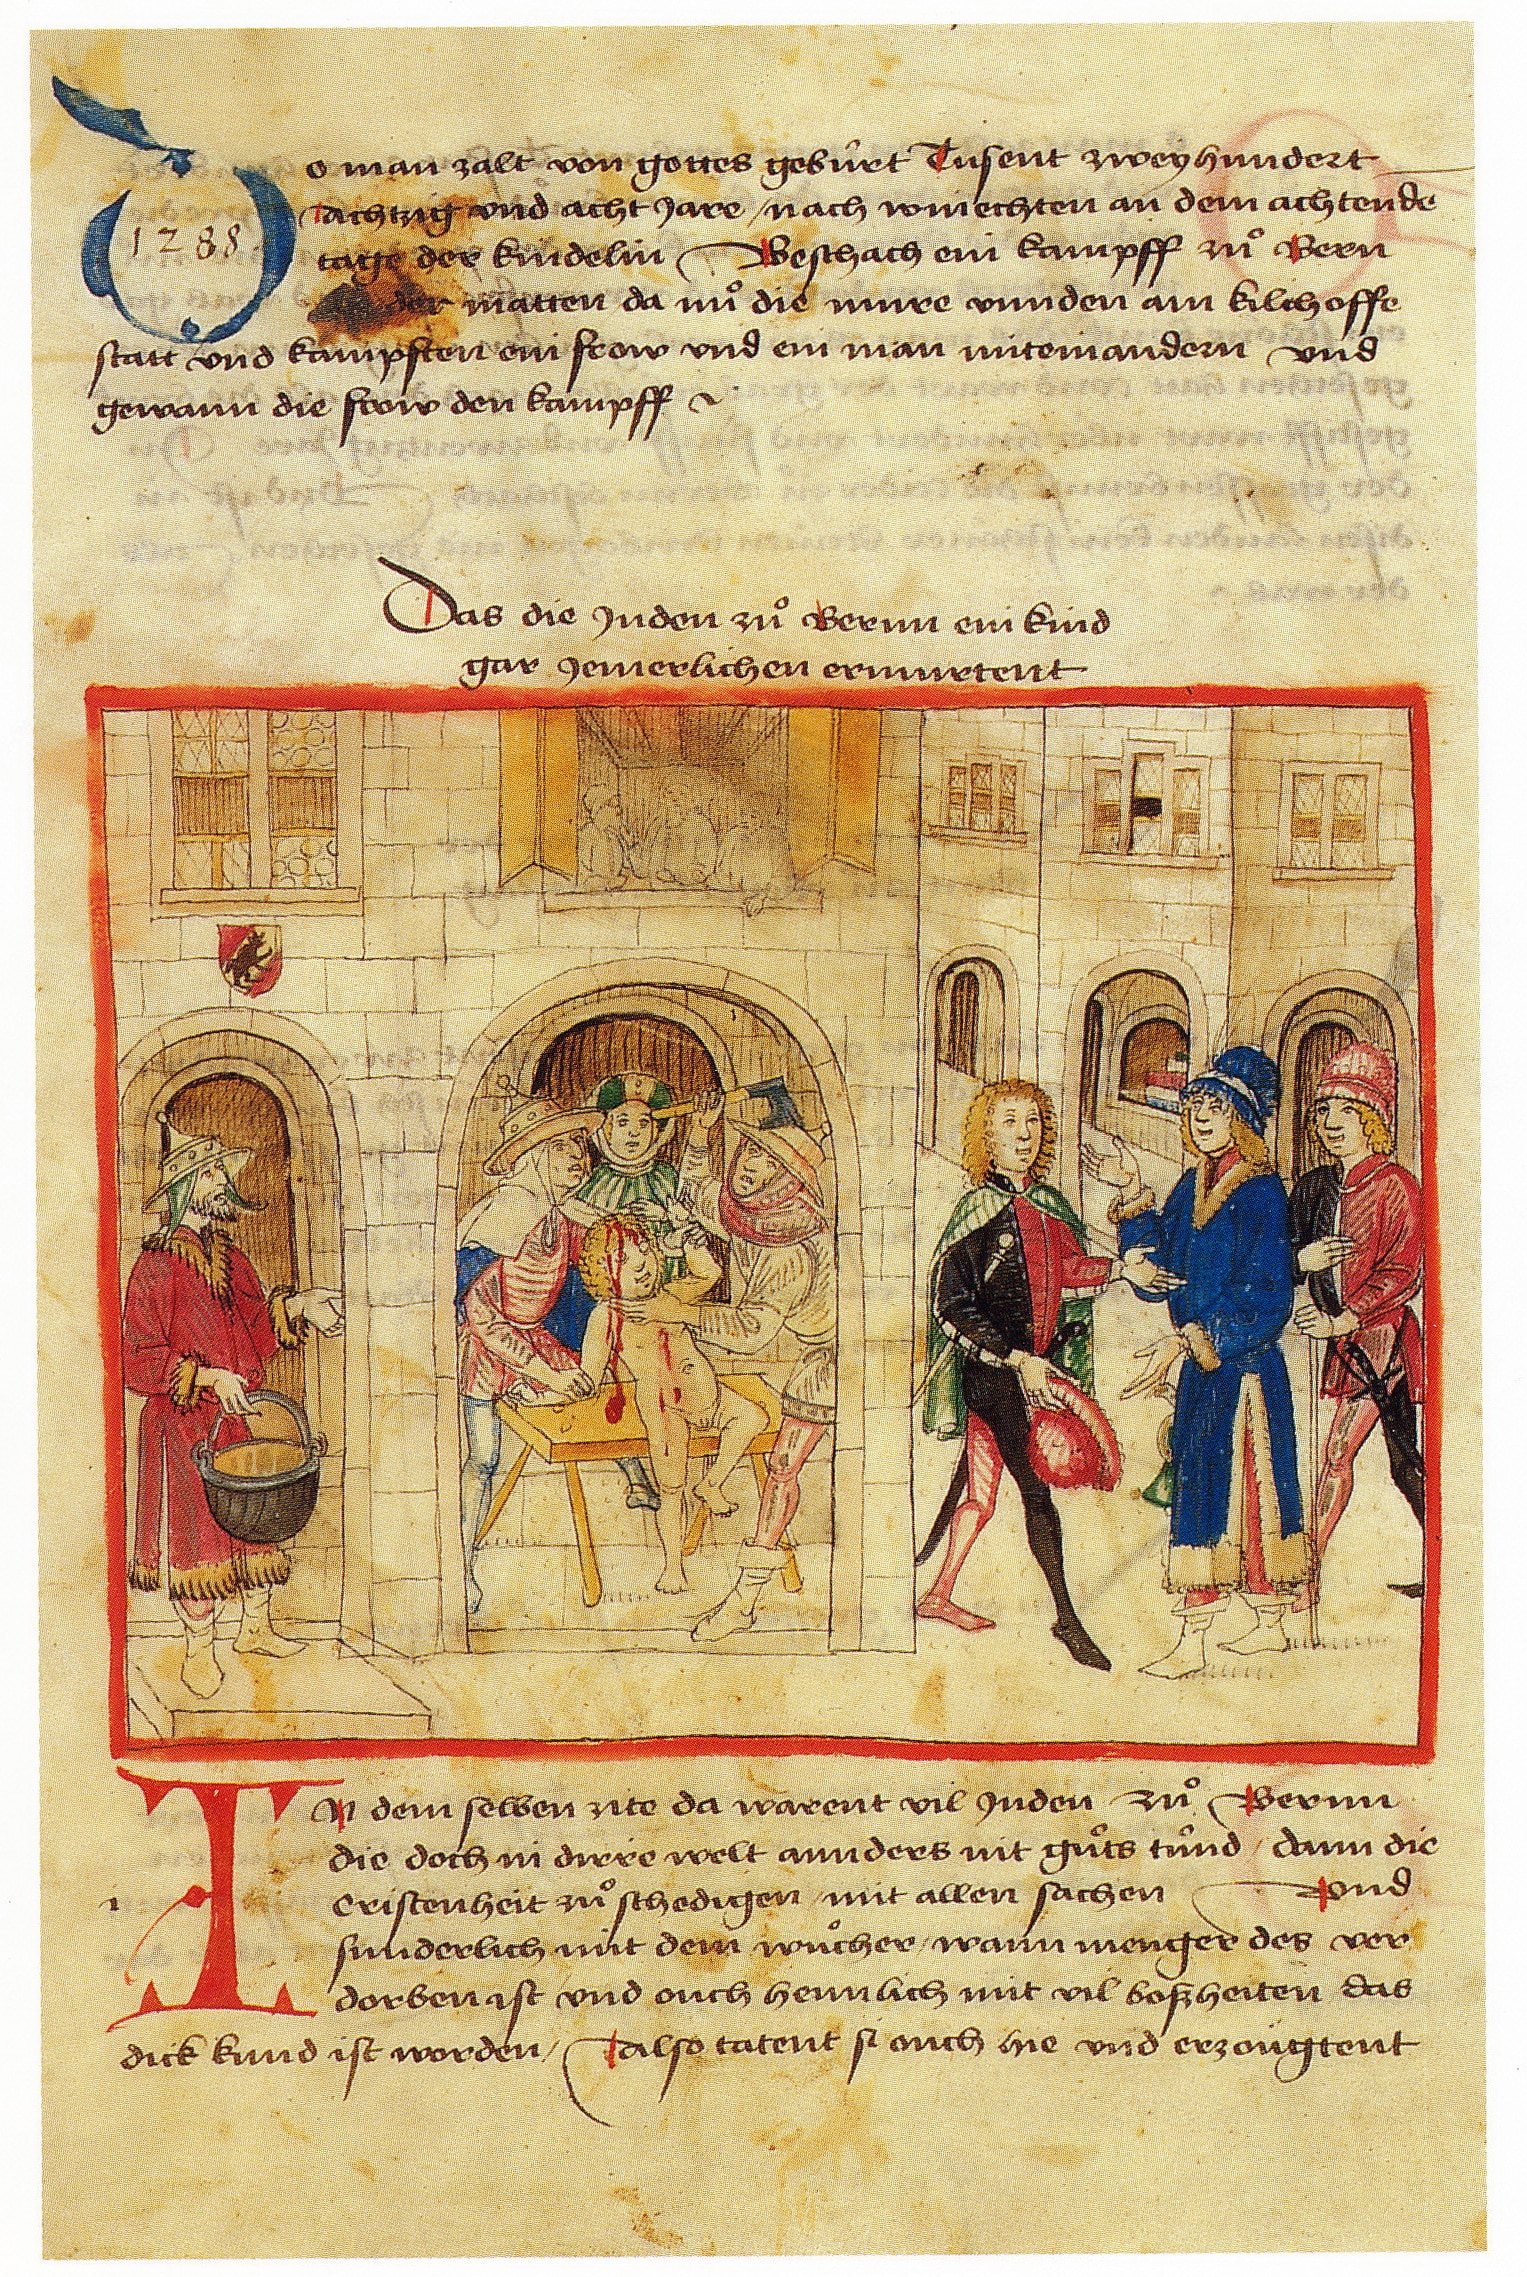 1288
Do man zalt von gottes gebürt Tusent zweyhundert
achtzig vnd acht Jare / nach winechten an dem achtende
tage der kindelin Beschach ein kampff zů Bern
der matten da nů die mure vnnden am kilchoffe
statt vnd kampften ein frow vnd ein man miteinandern vnd
gewann die frow den kampff
Das die Juden zů Bernn ein kind
gar Jemerlichen ermurtent
In dem selben zite da warent vil Juden zů Bernn
die doch in dirre welt annders nit gůts tůnd / dann die
Cristenheit zů schedigen / mit allen sachen vnd
sunderlich mit dem wůcher / wann menger des ver
dorben ist vnd ouch heimlich mit vil boßheiten das
dick kund ist worden / also tatent si ouch hie vnd erzöugtent